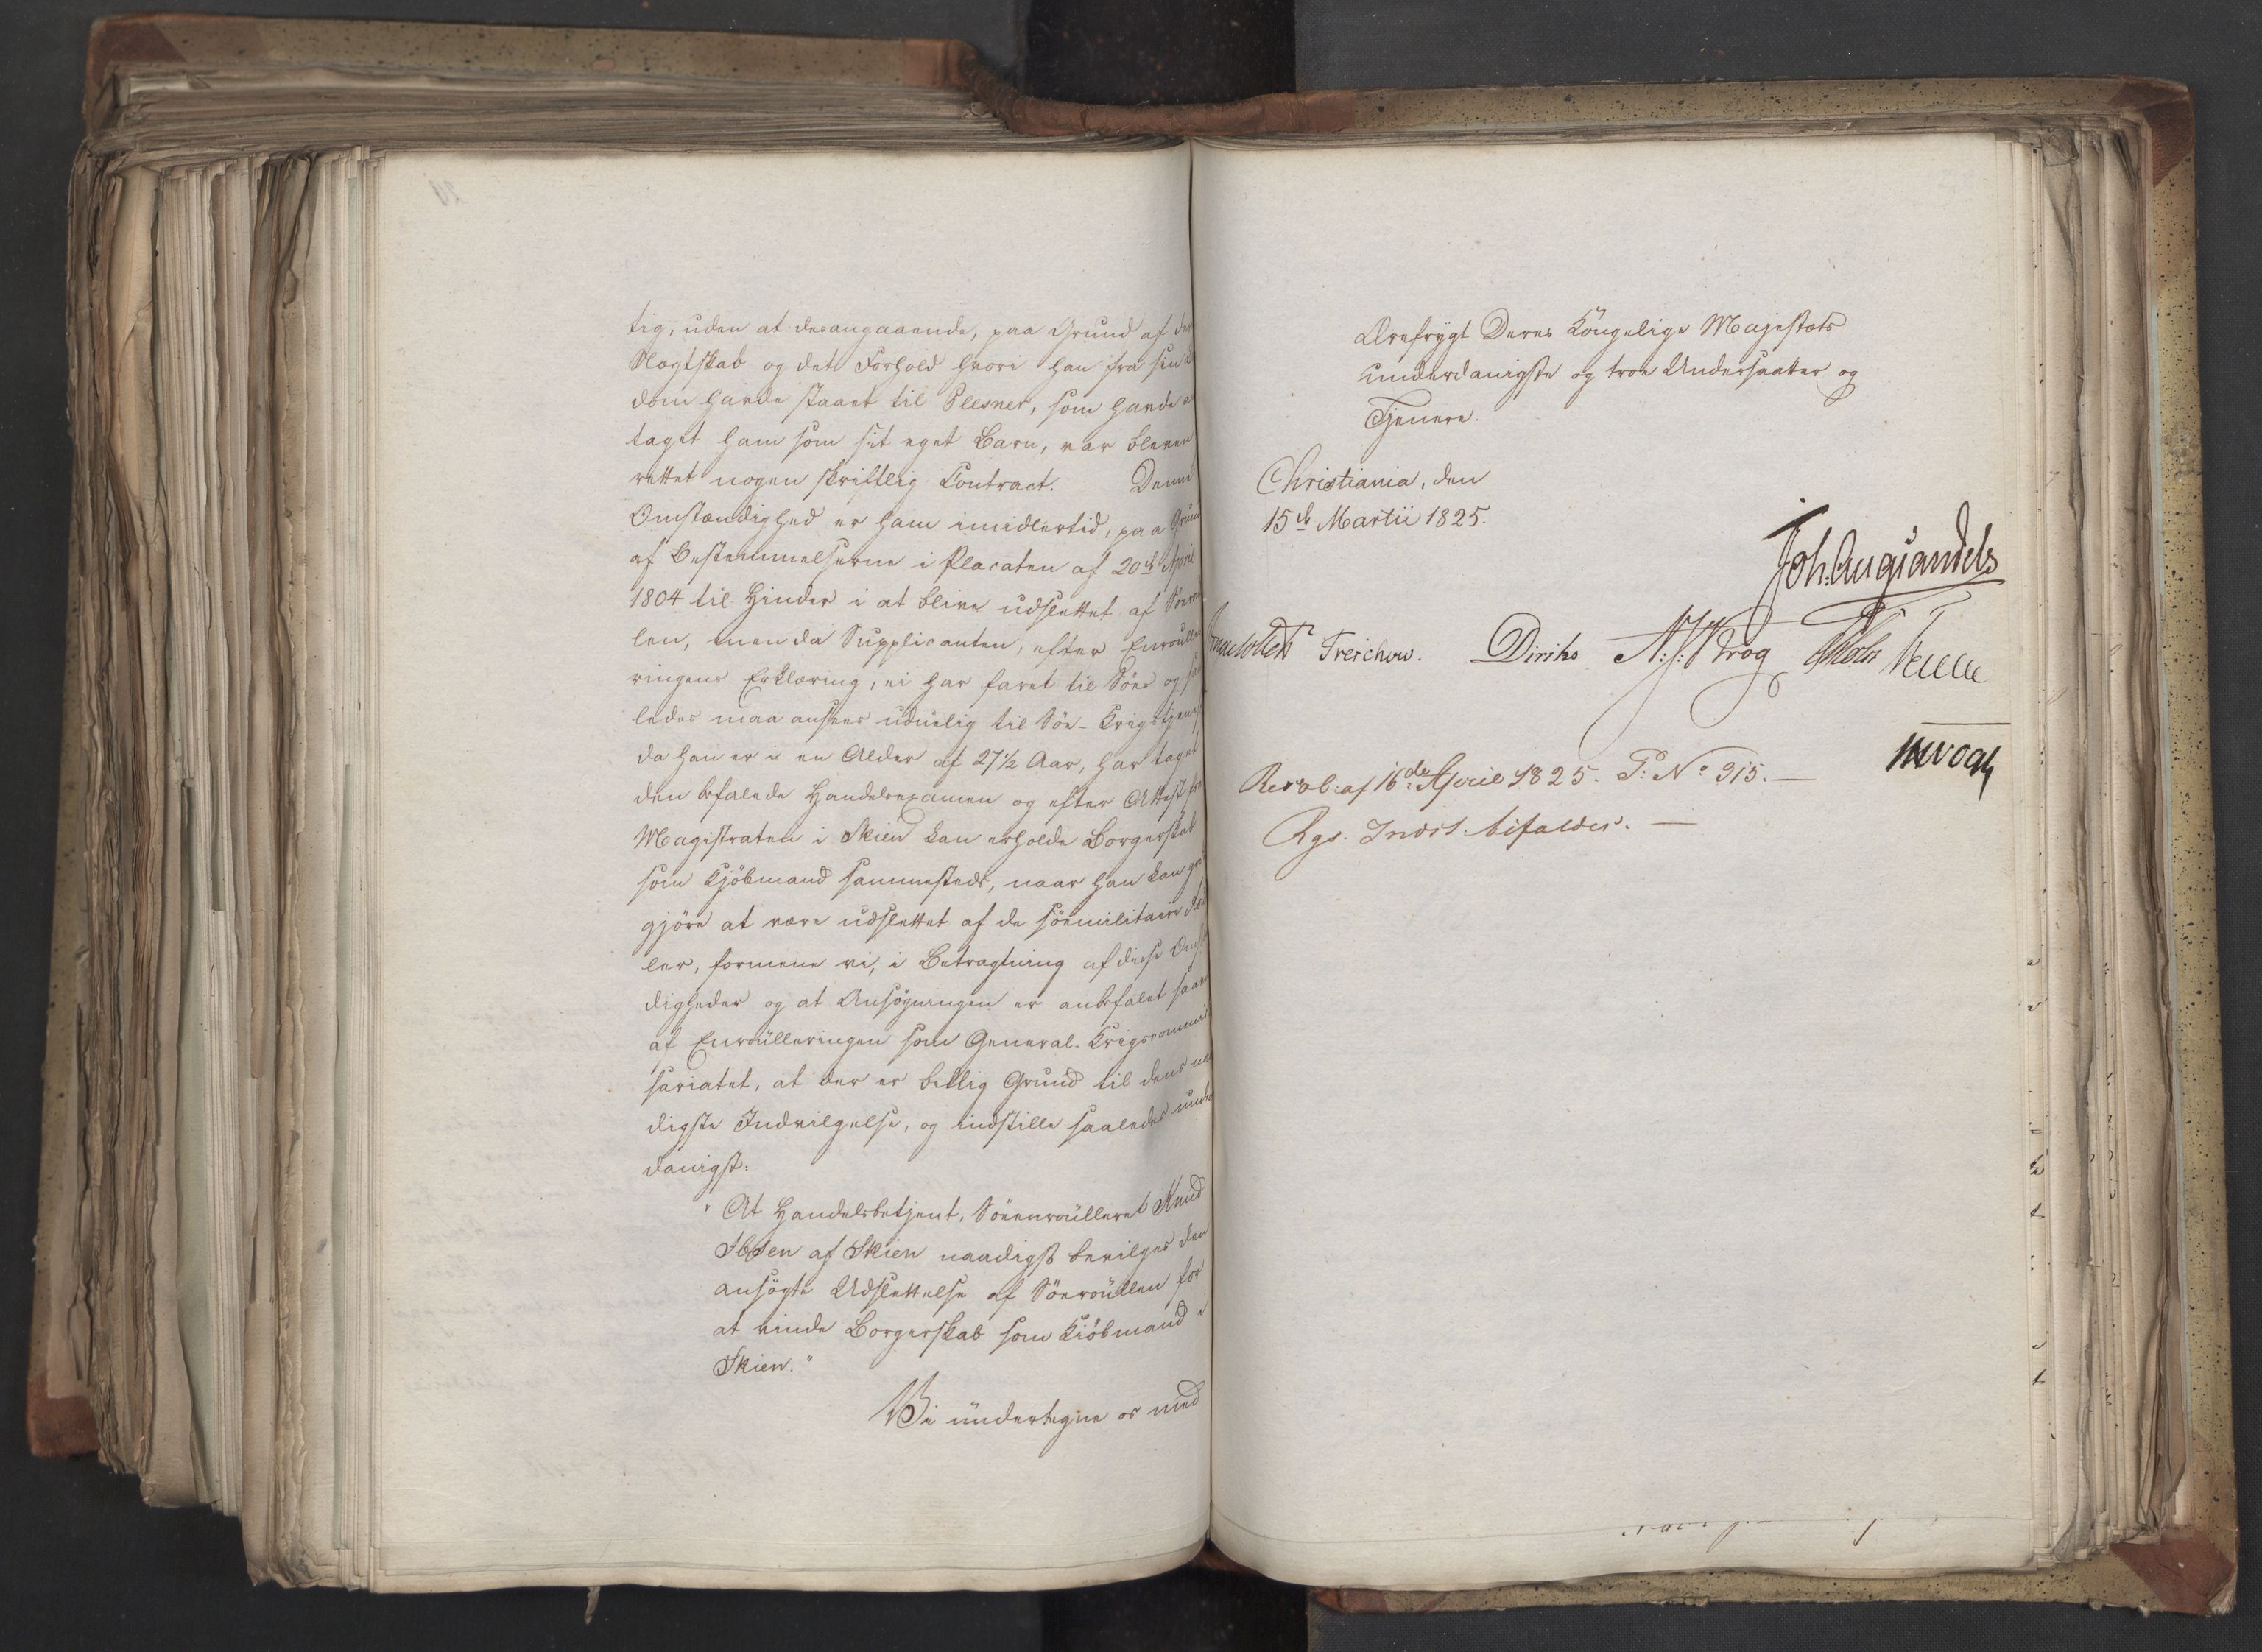 tig, uden at desangaaende, paa Grund af
Slægtskab og det Forhold hvori han fra sin
dom havde staaet til Plesner, som havde
taget ham som sit eget Barn, var bleven
rettet nogen skriftlig Contract. Denne
Omstændighed er ham imidlertid, paa Grund
af Bestemmelserne i Placaten af 20de April
1804 til Hinder i at blive udslettet af
len, men da Supplicanten, efter Enroulle
ringens Erklæring, ei har faret til Söes og
ledes maa ansees uduelig til Söe-Krigstjeneste
da han er i en Alder af 27 1/2 Aar, har taget
den befalede Handelsexamen og efter Attest fra
Magistraten i Skien kan erholde Borgerskab
som Kjöbmand sammesteds, naar han kan
gjöre at være udslettet af de söemilitaire
ler, formene vi, i Betragtning af disse
digheder og at Ansögningen er anbefalet saavel
af Enroulleringen som General-Krigscommis
sariatet, at der er billig Grund til dens
digste Indvilgelse, og indstille saaledes under
danigst:
"At Handelsbetjent, Söeenroulleret Knud
Ibsen af Skien naadigst bevilges den
ansögte Udslettelse af Söeroullen for
at vinde Borgerskab som Kiöbmand i
Skien."
Vi undertegne os med
Ærefrygt Deres Kongelige Majestæts
underdanigste og troe Undersaatter og
Tjenere.
Christiania, den
15de Martii 1825.
Joh: Aug Sandels
Treschow. Diriks
Resol: af 16de April 1825. P: No 915.—
Rgs. Indst: bifaldes. —